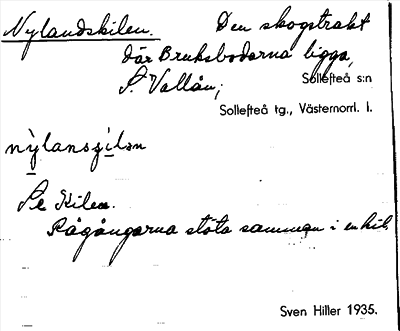 Nylandskilen. Den skogstrakt
där Bruksbodarna ligga,
S. Vallån; Sollefteå s:n
Sollefteå tg., Västernorrl. l.
nỳlansʒilən
Se Kilen.
Rågångarna stöta samman i en kil.
Sven Hiller 1935.